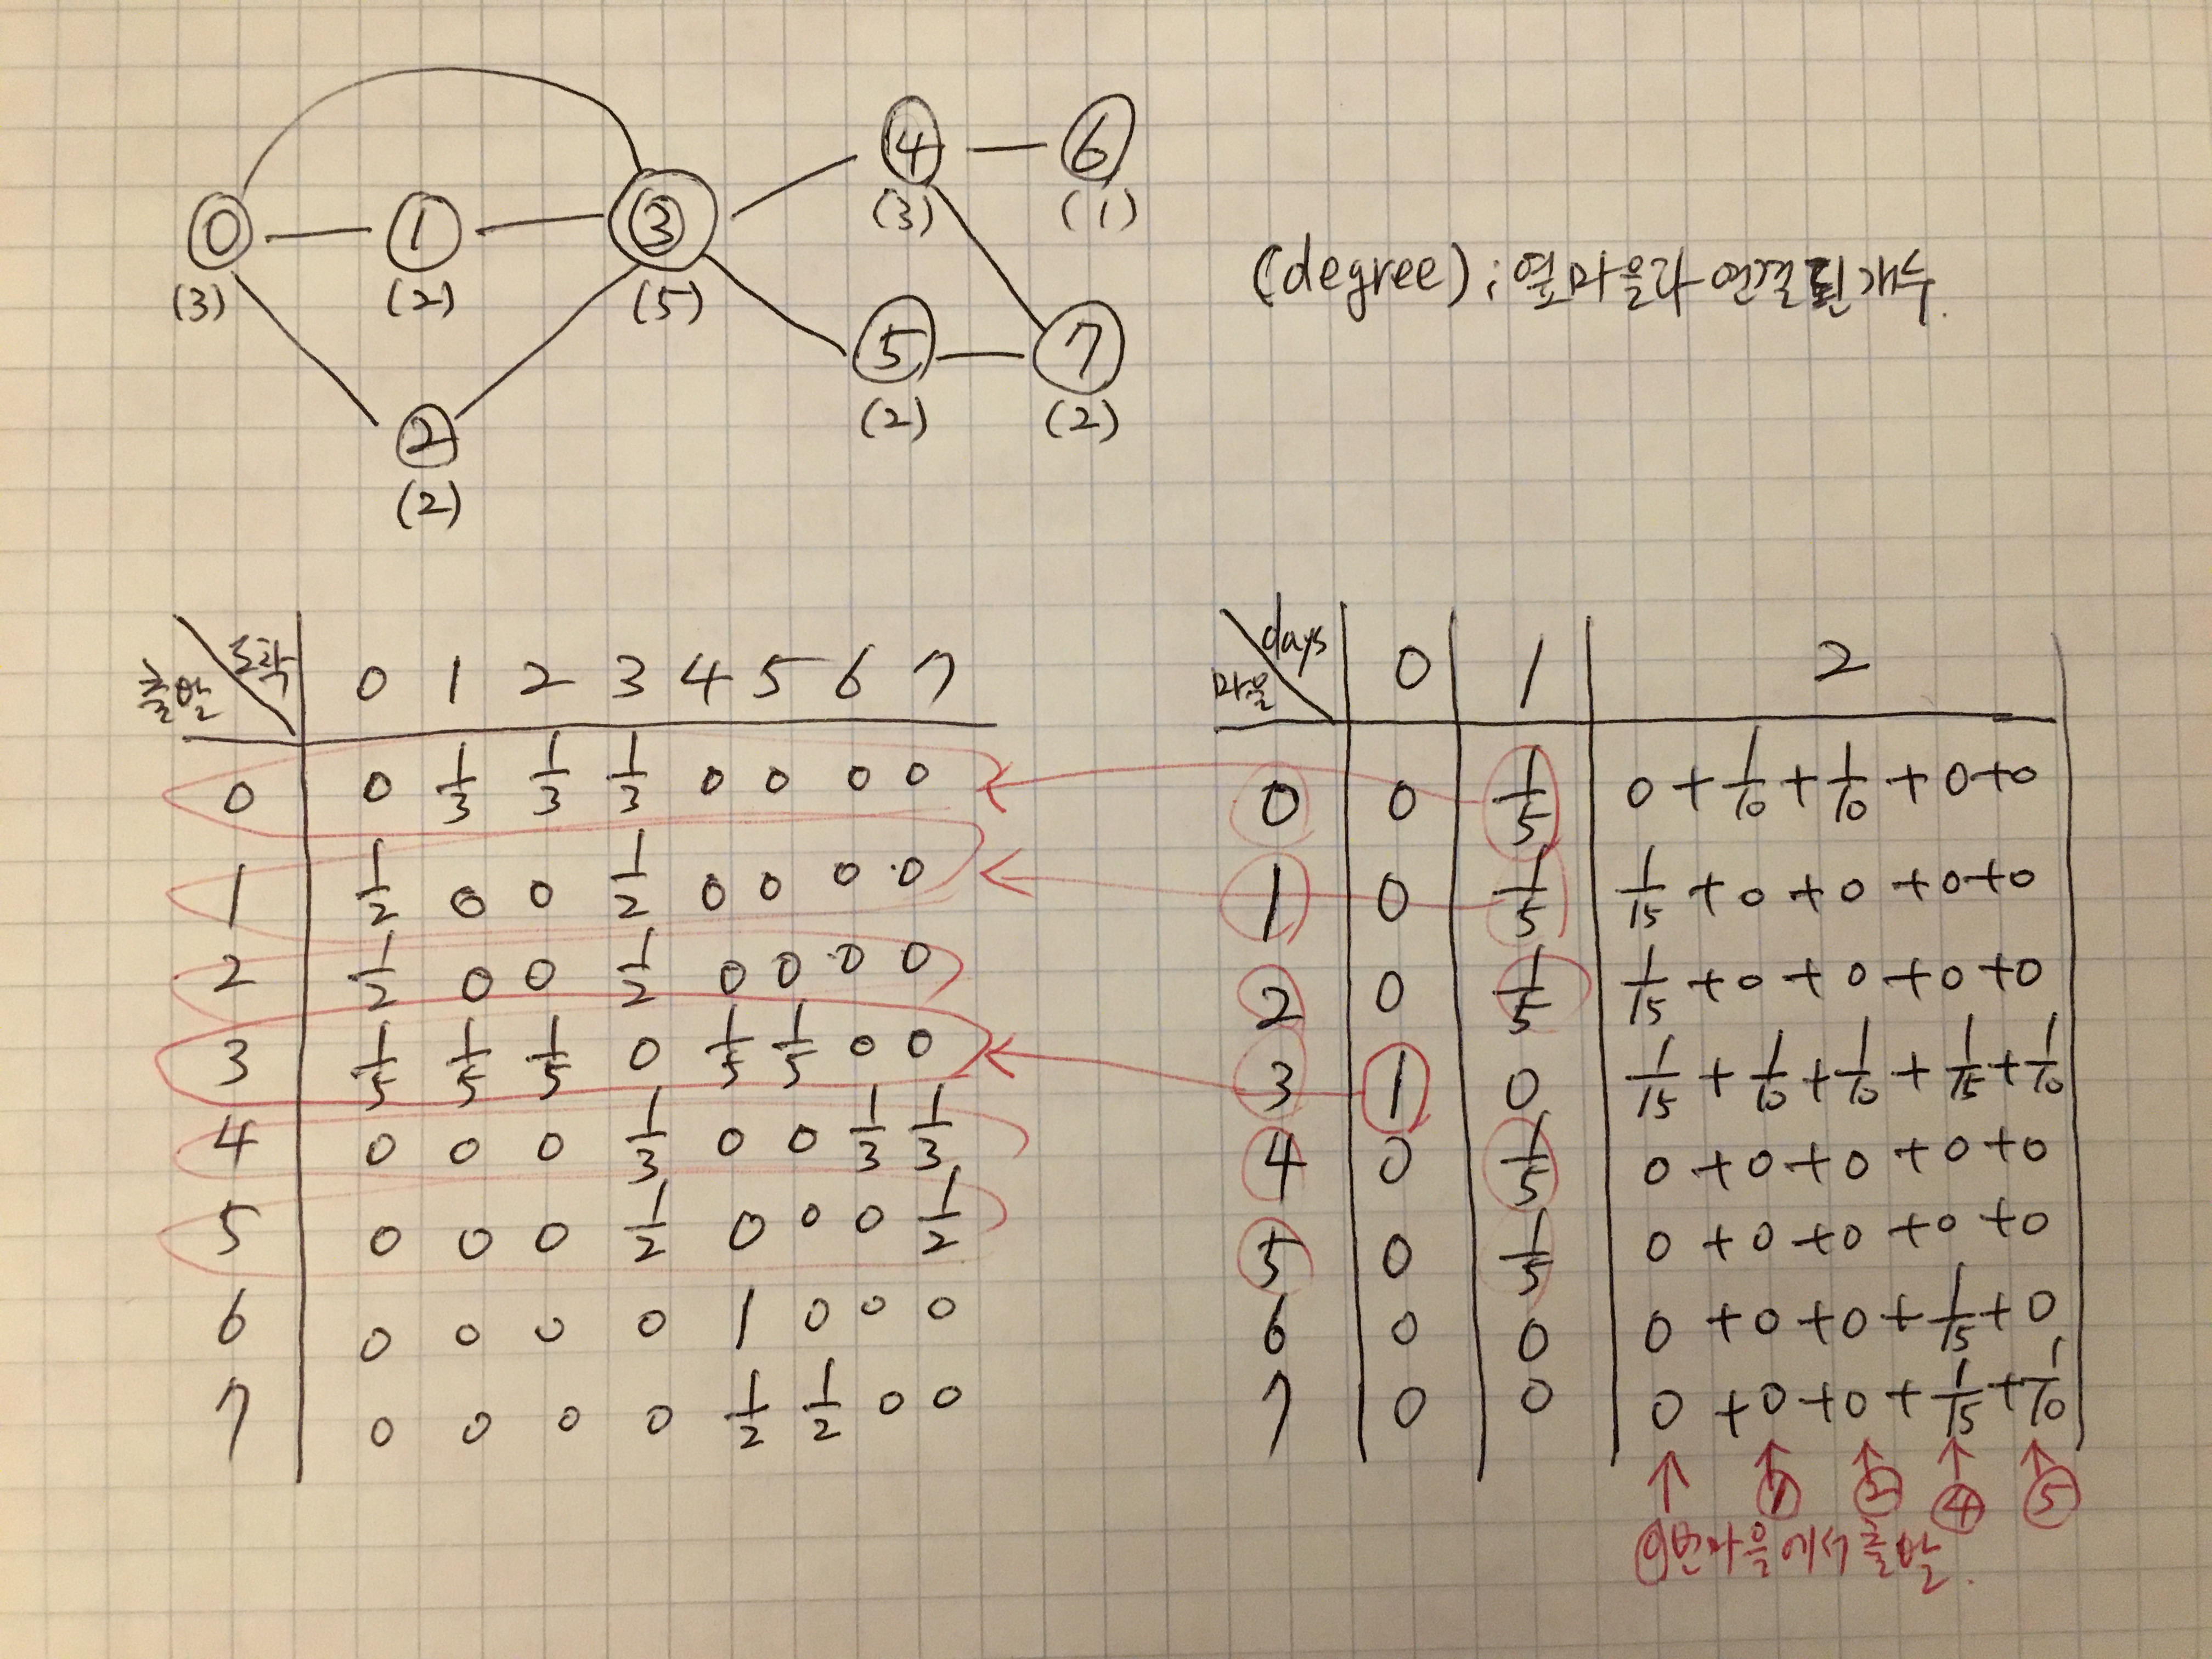 0 1 3 4 6
(3) (2) (5) (3) (1)
2 5 7
(2) (2) (2)
(degree) ; 옆마을과 연결된 개수.
출발 도착 0 1 2 3 4 5 6 7
0 0 1/3 1/3 1/3 0 0 0 0
1 1/2 0 0 1/2 0 0 0 0
2 1/2 0 0 1/2 0 0 0 0
3 1/5 1/5 1/5 0 1/5 1/5 0 0
4 0 0 0 1/3 0 0 1/3 1/3
5 0 0 0 1/2 0 0 0 1/2
6 0 0 0 0 1 0 0 0
7 0 0 0 0 1/2 1/2 0 0
마을 days 0 1 2
0 0 1/5 0 + 1/10 + 1/10 + 0 + 0
1 0 1/5 1/15 + 0 + 0 + 0 + 0
2 0 1/5 1/15 + 0 + 0 + 0 + 0
3 1 0 1/15 + 1/10 + 1/10 + 1/15 + 1/10
4 0 1/5 0 + 0 + 0 + 0 + 0
5 0 1/5 0 + 0 + 0 + 0 + 0
6 0 0 0 + 0 + 0 + 1/15 + 0
7 0 0 0 + 0 + 0 + 1/15 + 1/10
↑ ↑ ↑ ↑ ↑
1 2 4 5
0번마을에서 출발.